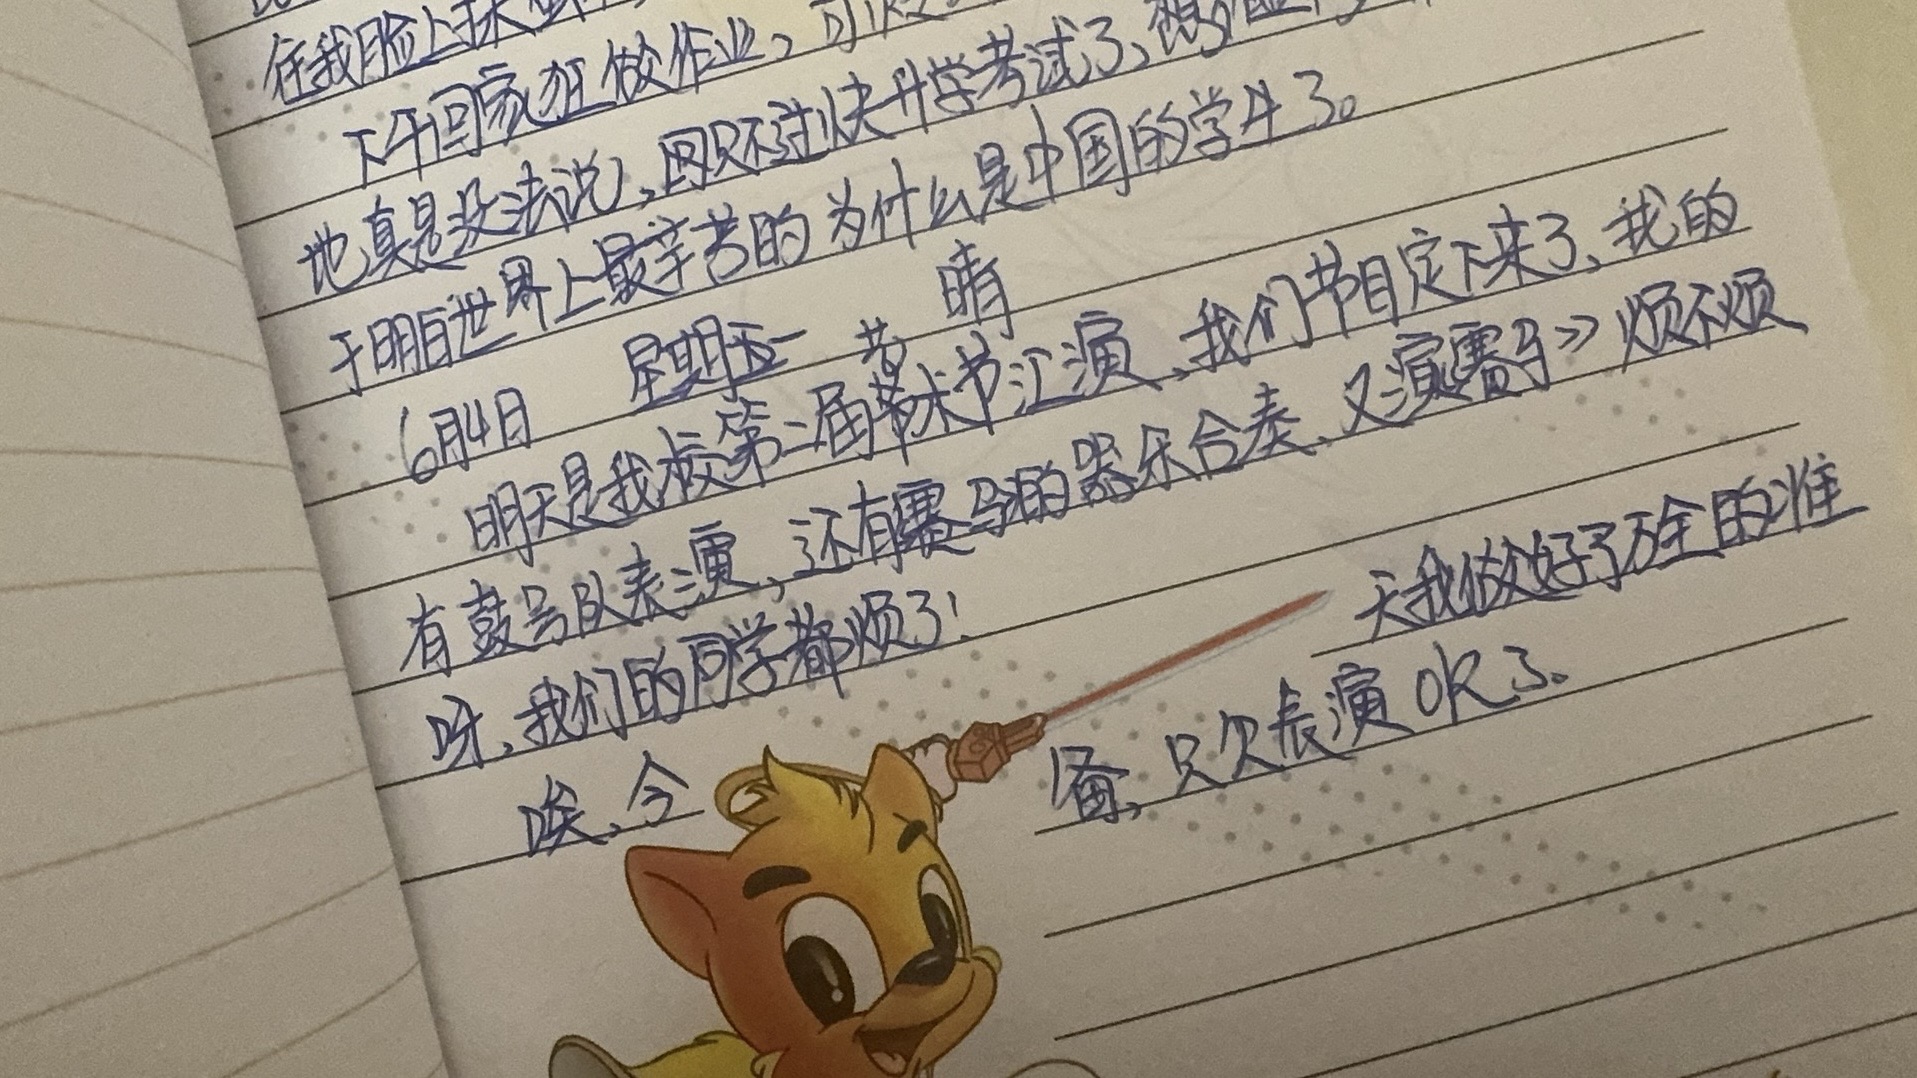 在我脸上抹
下午回家狂做作业,可
地真是没法说,因只不过快升学考试了、
于明白世界上最辛苦的为什么是中国的学生了。
6月4日 星期五 晴
明天是我校第二届艺术节汇演、我们节目定下来了、我的
有鼓号队表演,还有赛马的器乐合奏、又演赛马》烦不烦
呀、我们的同学都烦了!
唉、今天我做好了万全的准
备,只欠表演OK了、